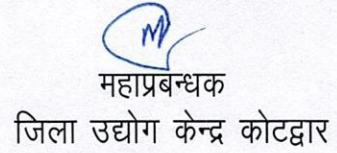 महाप्रबन्धक
जिला उद्योग केन्द्र कोटद्वार